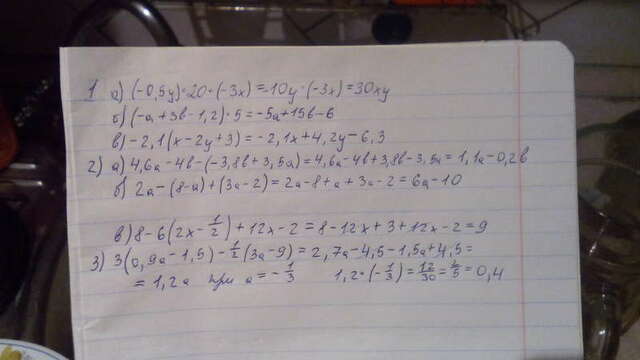 1 а) (-0,5y)·20·(-3x)=-10y·(-3x)=30xy
б) (-a+3b-1,2)·5=-5a+15b-6
в) -2,1(x-2y+3)=-2,1x+4,2y-6,3
2) а) 4,6a-4b-(-3,8b+3,5a)=4,6a-4b+3,8b-3,5a=1,1a-0,2b
б) 2a-(8-a)+(3a-2)=2a-8+a+3a-2=6a-10
в) 8-6(2x-1/2)+12x-2=8-12x+3+12x-2=9
3) 3(0,9a-1,5)-1/2(3a-9)=2,7a-4,5-1,5a+4,5=
=1,2a при a=-1/3 1,2·(-1/3)=12/30=2/5=0,4